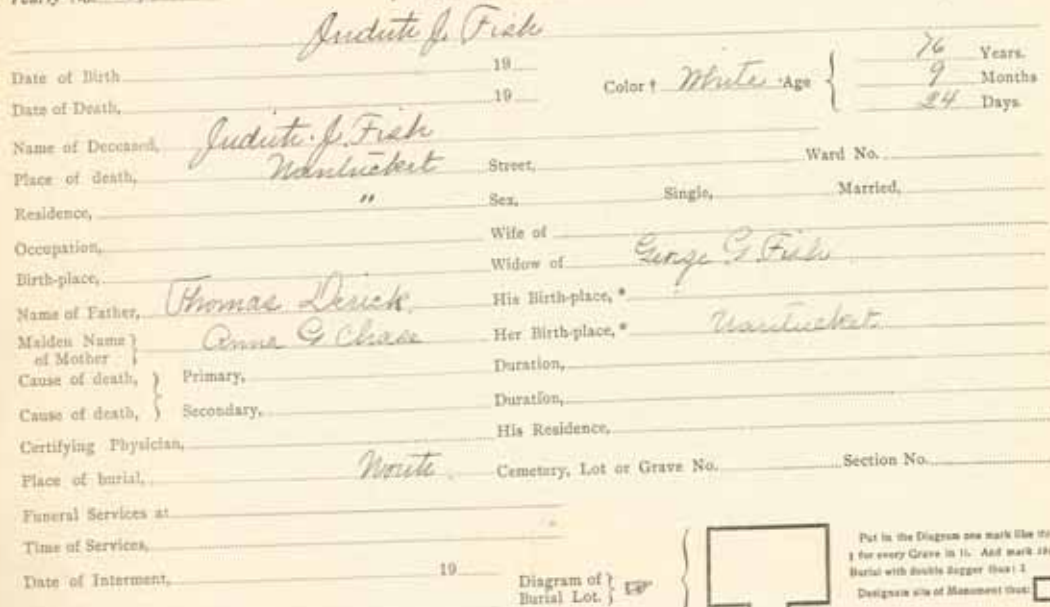 Judith J. Fish
Date of Birth 19
Color † White Age { 76 Years.
9 Months
24 Days.
Date of Death, 19
Name of Deceased, Judith. J. Fish
Place of death, Nantucket Street, Ward No.
Residence, " Sex, Single, Married,
Occupation, Wife of
Birth-place, Widow of George G. Fish
Name of Father, Thomas Derick. His Birth-place, *
Maiden Name of Mother } Anna G Chase Her Birth-place, * Nantucket
Cause of death, } Primary, Duration,
Cause of death, } Secondary, Duration,
Certifying Physician, His Residence,
Place of burial, North. Cemetery, Lot or Grave No. Section No.
Funeral Services at
Time of Services,
Date of Interment, 19
Diagram of Burial Lot. } ☞ {
Put in the Diagram one mark like
for every Grave in it. And mark
Burial with double dagger thus: ‡
Designate site of Monument thus: